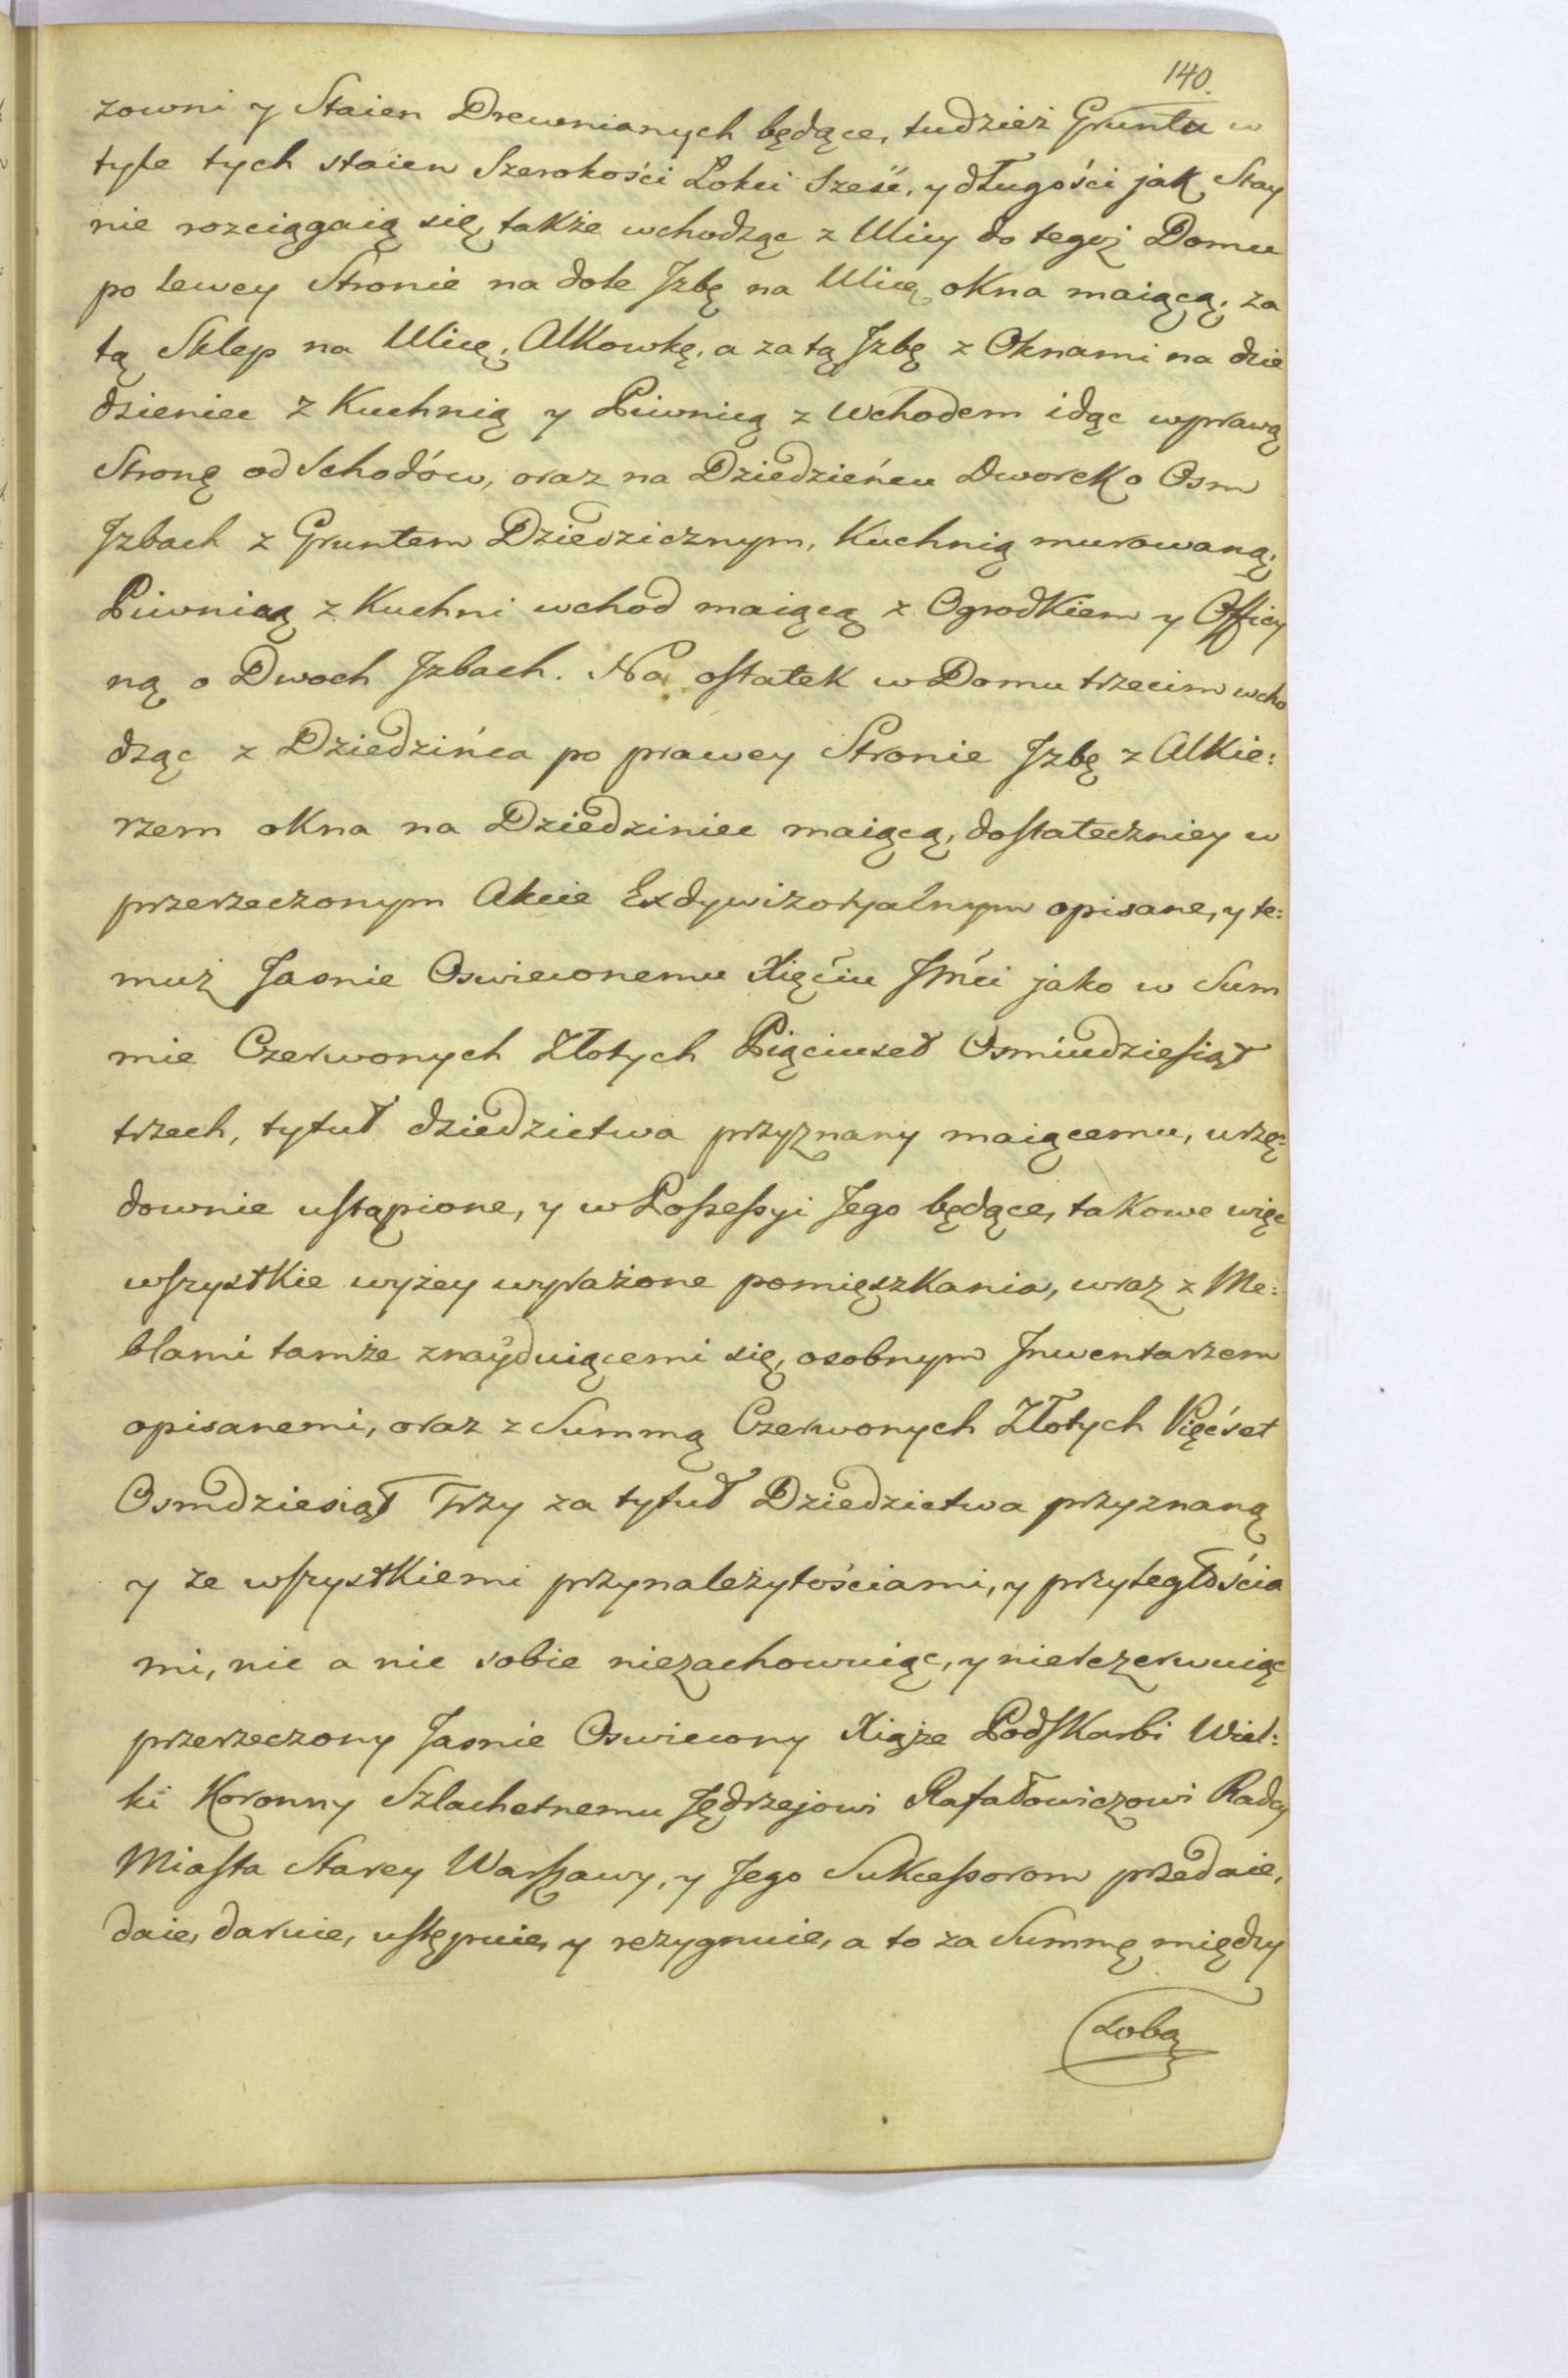 140.
zowni y Staien Drewnianych będące, tudzież Gruntu w
tyle tych staien Szerokości Łokci Sześć, y długości jak Stay
nie rozciągaią się, także wchodząc z Ulicy do tegoż Domu
po lewey Stronie na dole Jzbę na Ulicę okna maiącą, za
tą Sklep na Ulicę, Alkowkę, a za tą Jzbę z Oknami na dzie
dzieniec z Kuchnią y Piwnicą z Wchodem idąc w prawą
Stronę od Schodów, oraz na Dziedzieńcu Dworek o Osm
Jzbach z Gruntem Dziedzicznym, Kuchnią murowaną,
Piwnicą z Kuchni wchod maiącą z Ogrodkiem y Officy
ną o Dwoch Jzbach. Na ostatek w Domu trzecim wcho
dząc z Dziedzińca po prawey Stronie Jzbę z Alkie:
rzem okna na Dziedziniec maiącą, dostateczniey w
przerzeczonym Akcie Exdywizoryalnym opisane, y te:
muż Jasnie Oswieconemu Xięćiu Jmći jako w Sum
mie Czerwonych Złotych Pięciuset Osmiudziesiąt
trzech, tytuł dziedzictwa przyznany maiącemu, urzę:
downie ustąpione, y w Possessyi Jego będące, takowe więc
wszystkie wyżey wyrażone pomięszkania, wraz z Me:
blami tamże znayduiącemi się, osobnym Jnwentarzem
opisanemi, oraz z Summą Czerwonych Złotych Pięćset
Osmdziesiąt Trzy za tytuł Dziedzictwa przyznaną
y ze wszystkiemi przynależytościami, y przyległościa
mi, nic a nic sobie niezachowuiąc, y nierezerwuiąc
przerzeczony Jasnie Oswiecony Xiąże Podskarbi Wiel:
ki Koronny Szlachetnemu Jędrzejowi Rafałowiczowi Radcy
Miasta Starey Warszawy, y Jego Sukcessorom przedaie,
daie, daruie, ustępuie, y rezygnuie, a to za Summę między
sobą